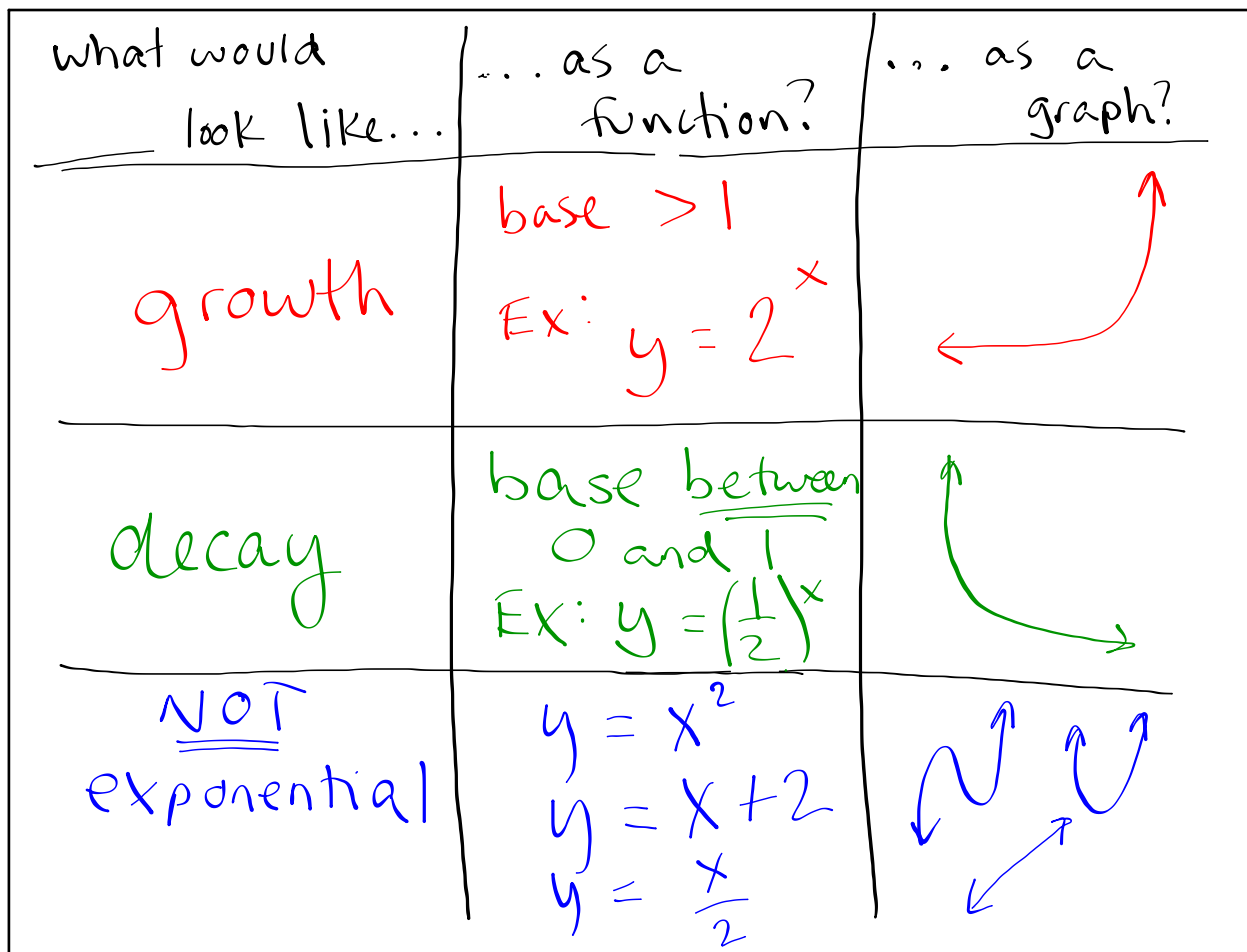 what would
look like...
... as a
function?
... as a
graph?
growth
base > 1
Ex: y = 2^x
decay
base between
0 and 1
Ex: y = (1/2)^x
NOT
exponential
y = x^2
y = x + 2
y = x/2